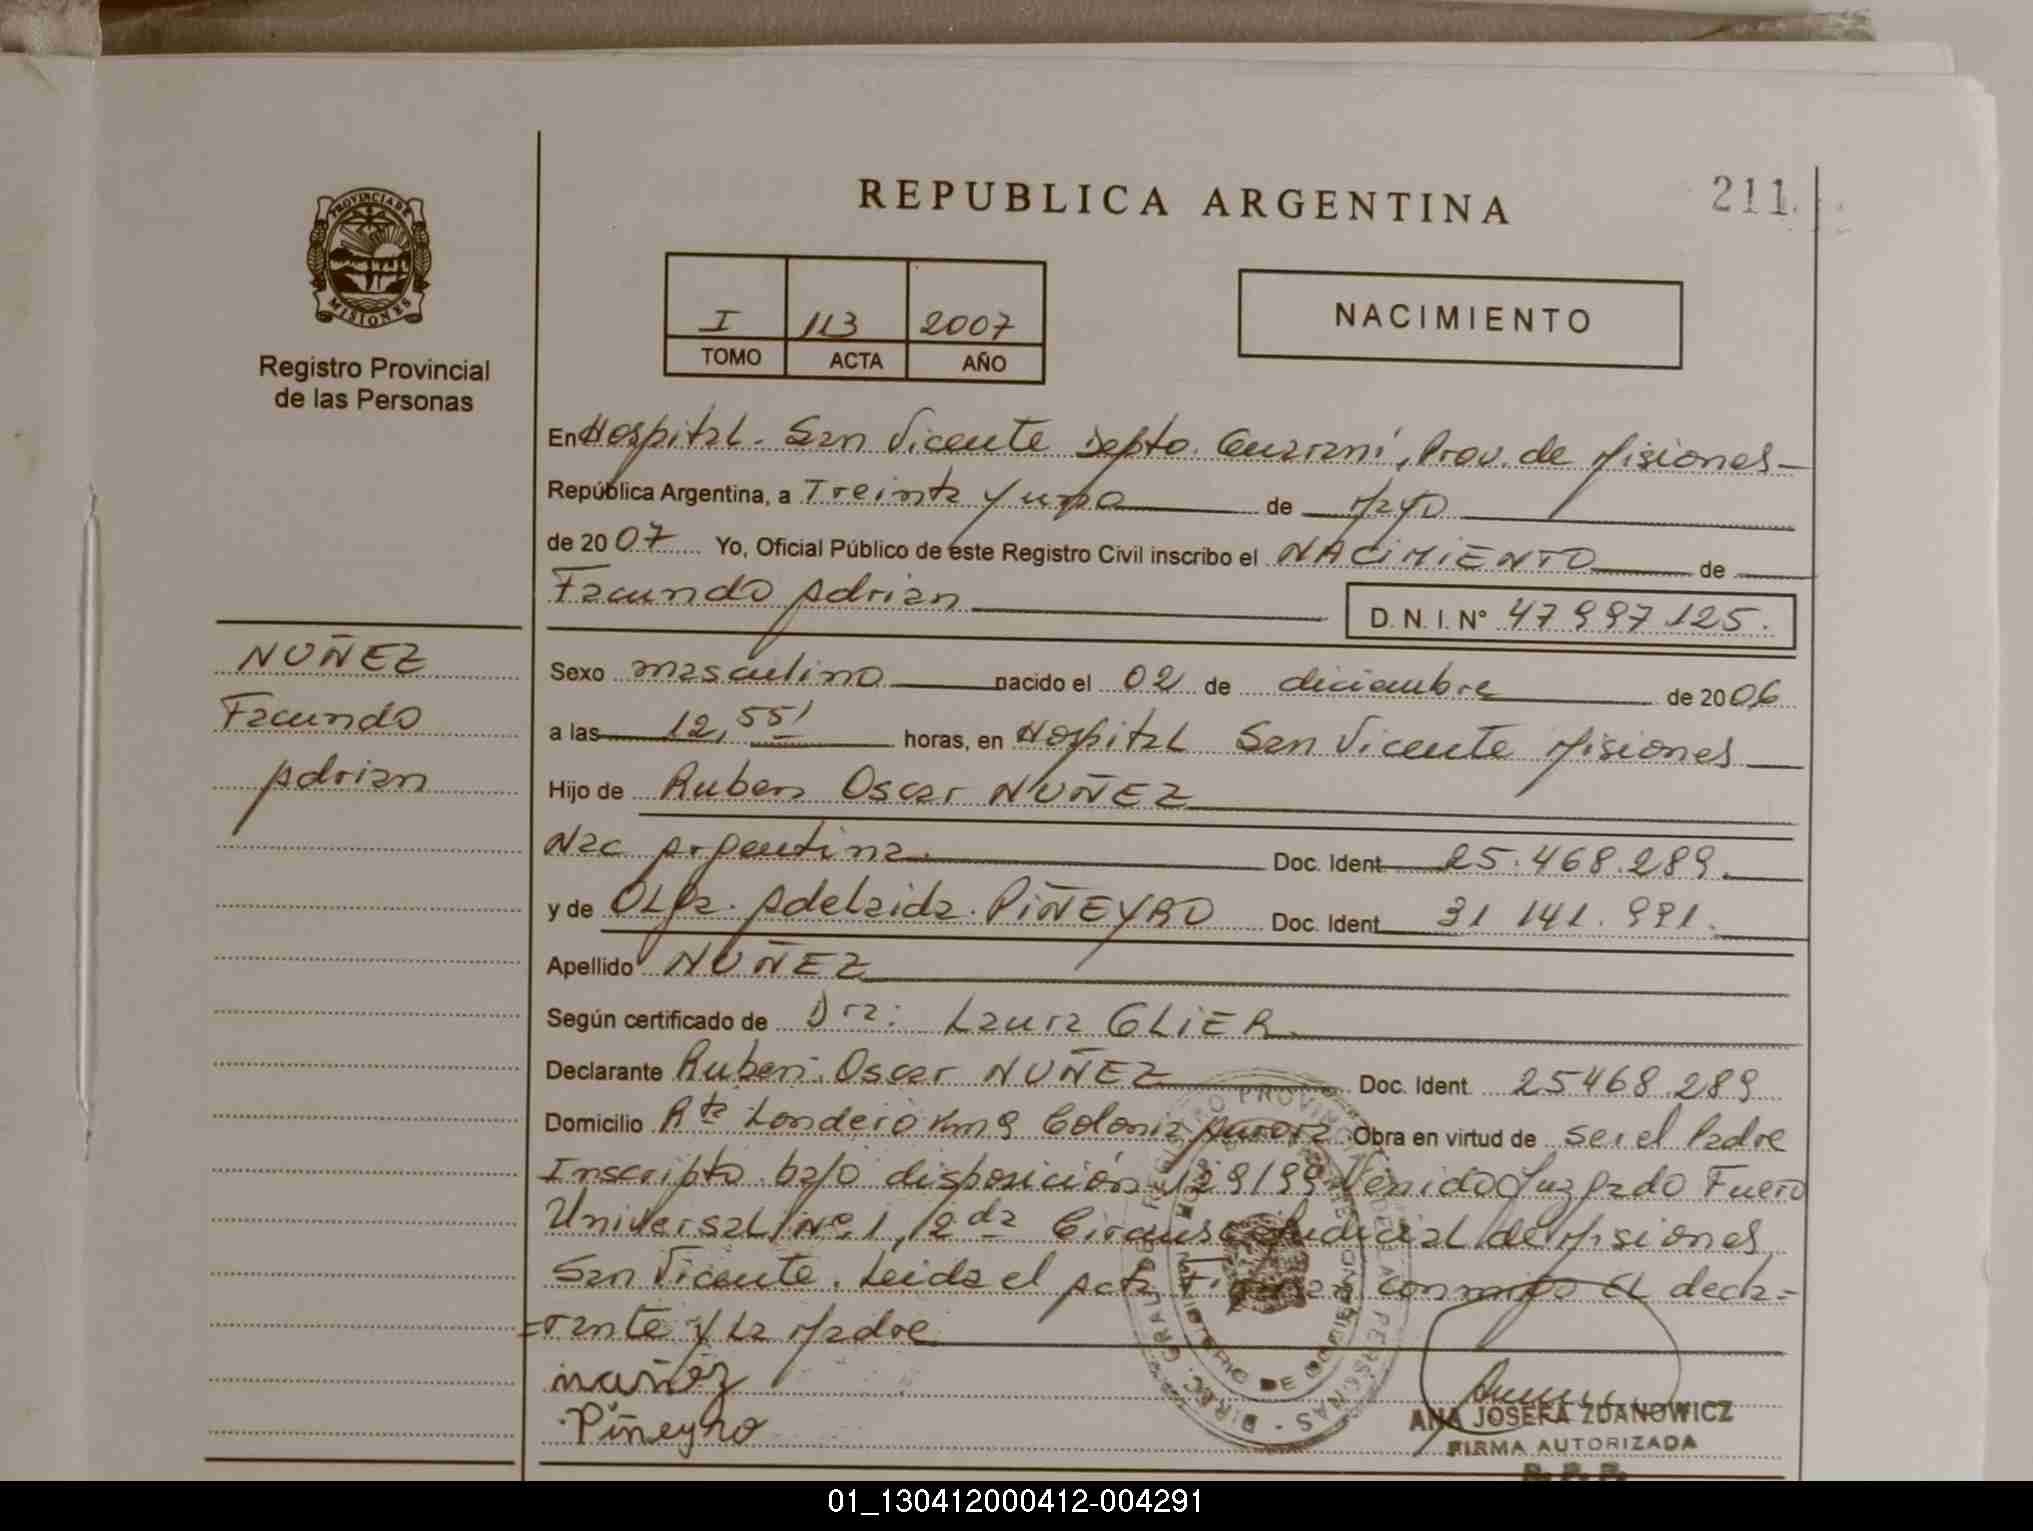 REPUBLICA ARGENTINA
211
PROVINCIA DE
MISIONES
Registro Provincial
de las Personas
I 113 2007
TOMO ACTA AÑO
NACIMIENTO
En Hospital San Vicente Depto. Guaraní, Prov. de Misiones
República Argentina, a Treinta y uno de Mayo
de 2007 Yo, Oficial Público de este Registro Civil inscribo el NACIMIENTO de
Facundo Adrian D. N. I. N° 47997125.
NUÑEZ
Facundo
Adrian
Sexo masculino nacido el 02 de diciembre de 2006
a las 12,55' horas, en Hospital San Vicente Misiones
Hijo de Ruben Oscar NUÑEZ
Nac Argentina Doc. Ident. 25.468.289.
y de Olga Adelaida PIÑEYRO Doc. Ident. 31 141.991.
Apellido NUÑEZ
Según certificado de Dra: Laura GLIER
Declarante Ruben Oscar NUÑEZ Doc. Ident. 25468.289
Domicilio Rta Londero Km 9 Colonia Aurora Obra en virtud de ser el Padre
Inscripto bajo disposición 129/99 Venido Juzgado Fuero
Universal Nº 1, 2da Circunsc. Judicial de Misiones
San Vicente. Leida el acta Firman conmigo EL decla=
=rante y La Madre
nuñez
Piñeyro
ANA JOSEFA ZDANOWICZ
FIRMA AUTORIZADA
R. P. P.
01_130412000412-004291